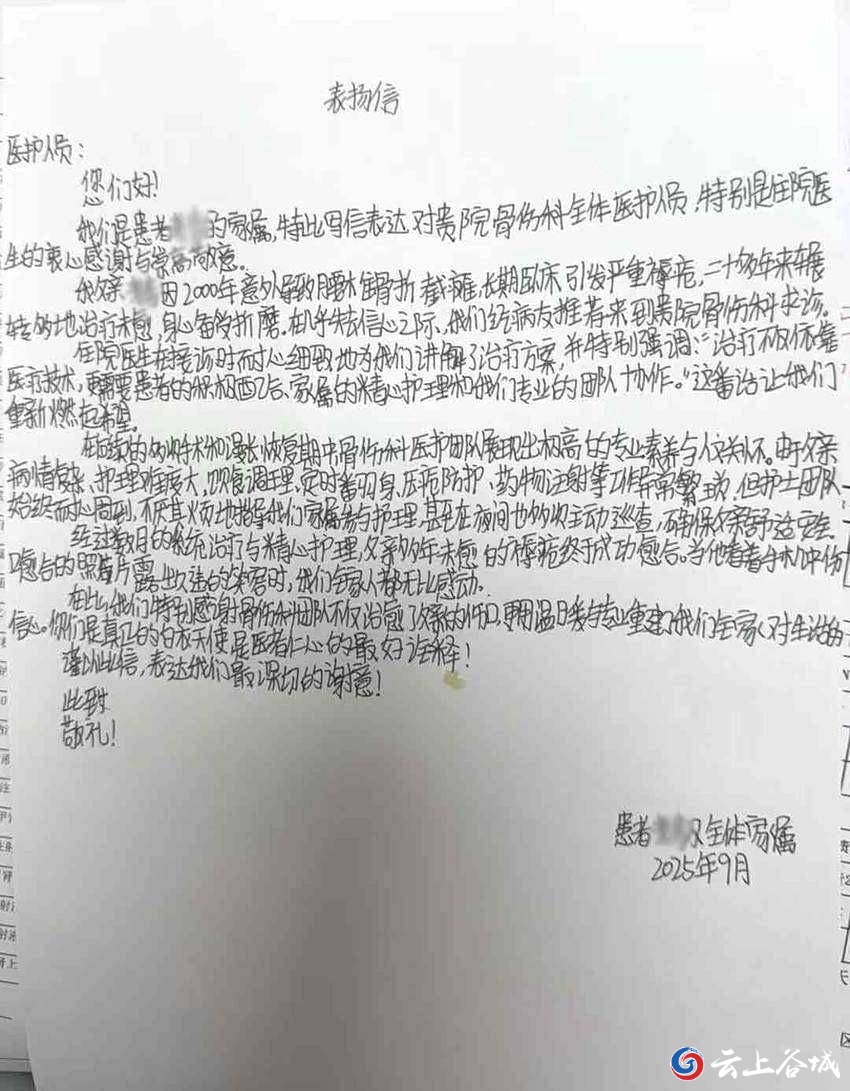 表扬信
医护人员：
您们好！
我们是患者的家属，特此写信表达对贵院骨伤科全体医护人员，特别是住院医
生的衷心感谢与崇高敬意。
我父亲因2000年意外导致腰椎骨折截瘫，长期卧床引发严重褥疮，二十多年来辗
转多地治疗未愈，身心备受折磨。在几乎失去信心之际，我们经病友推荐来到贵院骨伤科求诊。
住院医生在接诊时耐心细致地为我们讲解了治疗方案，并特别强调：“治疗不仅依靠
医疗技术，更需要患者的积极配合、家属的精心护理和我们专业的团队协作。”这番话让我们
重新燃起希望。
在后续的多次手术和漫长恢复期中骨伤科医护团队展现出极高的专业素养与人文关怀。由于父亲
病情复杂、护理难度大，饮食调理、定时翻身、压疮防护、药物注射等工作异常繁琐，但护士团队
始终耐心周到，不厌其烦地指导我们家属参与护理，甚至在夜间也多次主动巡查，确保父亲舒适安全。
经过数月的系统治疗与精心护理，父亲多年未愈的褥疮终于成功愈合。当他看着手机中伤
口愈合的照片露出久违的笑容时，我们全家人都无比感动。
在此，我们特别感谢骨伤科团队不仅治愈了父亲的伤口，更用温暖与专业重建了我们全家人对生活的
信心。你们是真正的白衣天使是医者仁心的最好诠释！
谨以此信，表达我们最深切的谢意！
此致
敬礼！
患者及全体家属
2025年9月
云上谷城